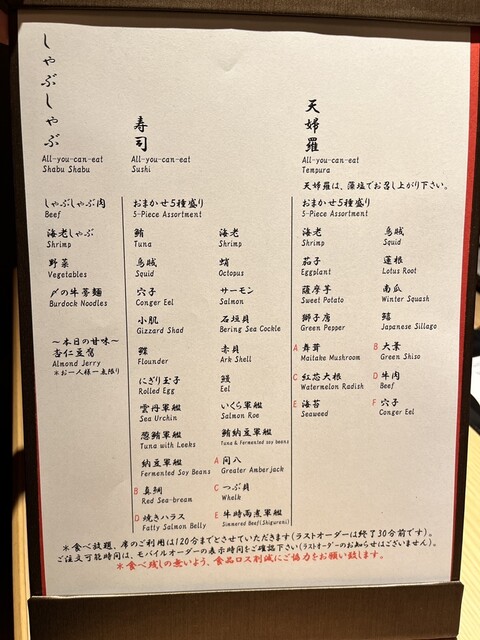 しゃぶしゃぶ
All-you-can-eat
Shabu Shabu
しゃぶしゃぶ肉
Beef
海老しゃぶ
Shrimp
野菜
Vegetables
〆の牛蒡麺
Burdock Noodles
～本日の甘味～
杏仁豆腐
Almond Jerry
*お一人様一点限り
寿司
All-you-can-eat
Sushi
おまかせ5種盛り
5-Piece Assortment
鮪
Tuna
烏賊
Squid
穴子
Conger Eel
小肌
Gizzard Shad
鰈
Flounder
にぎり玉子
Rolled Egg
雲丹軍艦
Sea Urchin
葱鮪軍艦
Tuna with Leeks
納豆軍艦
Fermented Soy Beans
B 真鯛
Red Sea-bream
D 焼きハラス
Fatty Salmon Belly
海老
Shrimp
蛸
Octopus
サーモン
Salmon
石垣貝
Bering Sea Cockle
赤貝
Ark Shell
鰻
Eel
いくら軍艦
Salmon Roe
鮪納豆軍艦
Tuna & fermented soy beans
A 間八
Greater Amberjack
C つぶ貝
Whelk
E 牛時雨煮軍艦
Simmered Beef(Shigureni)
天婦羅
All-you-can-eat
Tempura
天婦羅は、藻塩でお召し上がり下さい。
おまかせ5種盛り
5-Piece Assortment
海老
Shrimp
茄子
Eggplant
薩摩芋
Sweet Potato
獅子唐
Green Pepper
A 舞茸
Maitake Mushroom
C 紅芯大根
Watermelon Radish
E 海苔
Seaweed
烏賊
Squid
蓮根
Lotus Root
南瓜
Winter Squash
鱚
Japanese Sillago
B 大葉
Green Shiso
D 牛肉
Beef
F 穴子
Conger Eel
*食べ放題、席のご利用は120分までとさせていただきます(ラストオーダーは終了30分前です)。
ご注文可能時間は、モバイルオーダーの表示時間をご確認下さい(ラストオーダーのお知らせはございません)。
*食べ残しの無いよう、食品ロス削減にご協力をお願い致します。